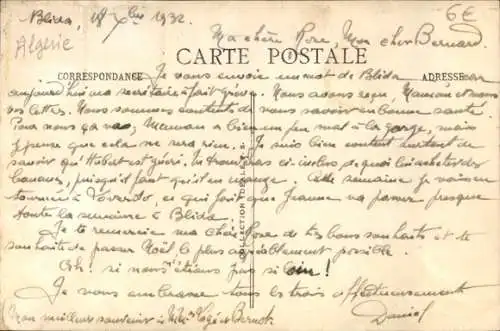 Blida, 18 Xbre 1932.
6€
Algérie
Ma chère Rose, Mon cher Bernard.
CARTE POSTALE
CORRESPONDANCE
ADRESSE
Je vous envoie un mot de Blida car
aujourd'hui ma secrétaire a fait grève. Nous avons reçu, Maman et nous
vos lettres. Nous sommes contents de vous savoir en bonne santé.
Pour nous ça va, Maman a bien un peu mal à la gorge, mais
je pense que cela ne sera rien. Je suis bien content surtout de
savoir qu'Hubert est guéri. Tu trouveras ci-inclus de quoi lui acheter des
bananes, puisqu'il faut qu'il en mange. Cette semaine je vais en
tournée à, ce qui fait que Jeanne va passer presque
toute la semaine à Blida.
Je te remercie ma chère Rose de tes bons souhaits et te
souhaite de passer Noël le plus agréablement possible.
Ah! si nous n'étions pas si loin!
Je vous embrasse tous les trois affectueusement
Daniel
Mon meilleur souvenir à
COLLECTION IDEALE